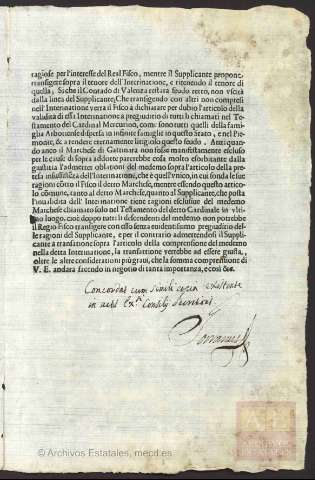 ragiose per l'interesse del Real Fisco, mentre il Supplicante propone
transigere sopra il tenore dell'Interinatione, e ritenendo il tenore di
quella, Siche il Contado di Valenza restara feudo retto, non uscirà
dalla linea del Supplicante, Che transigendo con altri non compresi
nell'Interinatione verra il Fisco à dichiarare per dubio l'articolo della
validità di essa Interinatione à pregiuditio di tutti li chiamati nel Te-
stamento del Cardinal Mercurino, come sono tutti quelli della fami-
glia Arboriense dispersa in infinite famiglie in questo Stato, e nel Pie-
monte, & à rendere eternamente litigiolo questo feudo. Anzi quan-
do anco il Marchese di Gattinara non fosse manifestamente escluso
per le cause di sopra addotte parerebbe cosa molto esorbitante dalla
giustitia l'admetter oblationi del medemo sopra l'articolo della pre-
tesa insussistēza dell'Interinatione, che è quell'unico, in cui fonda le sue
ragioni cōtro il Fisco il detto Marchese, mentre essendo questo artico-
lo cōmune, tanto al detto Marchese, quanto al Supplicante, che posta
l'inualidità dell'Interinatione tiene ragioni esclusive del medemo
Marchese chiamato solo nel Testamento del detto Cardinale in ulti-
mo luogo, cioè doppo tutti li descendenti del medemo non potrebbe
il Regio Fisco transigere con esso senza euidentissimo pregiuditio del-
le ragioni del Supplicante, e per il contrario admettendosi il Suppli-
cante à transatione sopra l'articolo della comprensione del medemo
nella detta Interinatione, la transattione verrebbe ad essere giusta,
oltre le altre considerationi più graui, che la somma comprensione di
V. E. andarà facendo in negotio di tanta importanza, e così &c.
Concordat cum simili copia existente
in actis Ex.mi Consilij
ARCHIVOS
ESTATALES
© Archivos Estatales, mecd.es